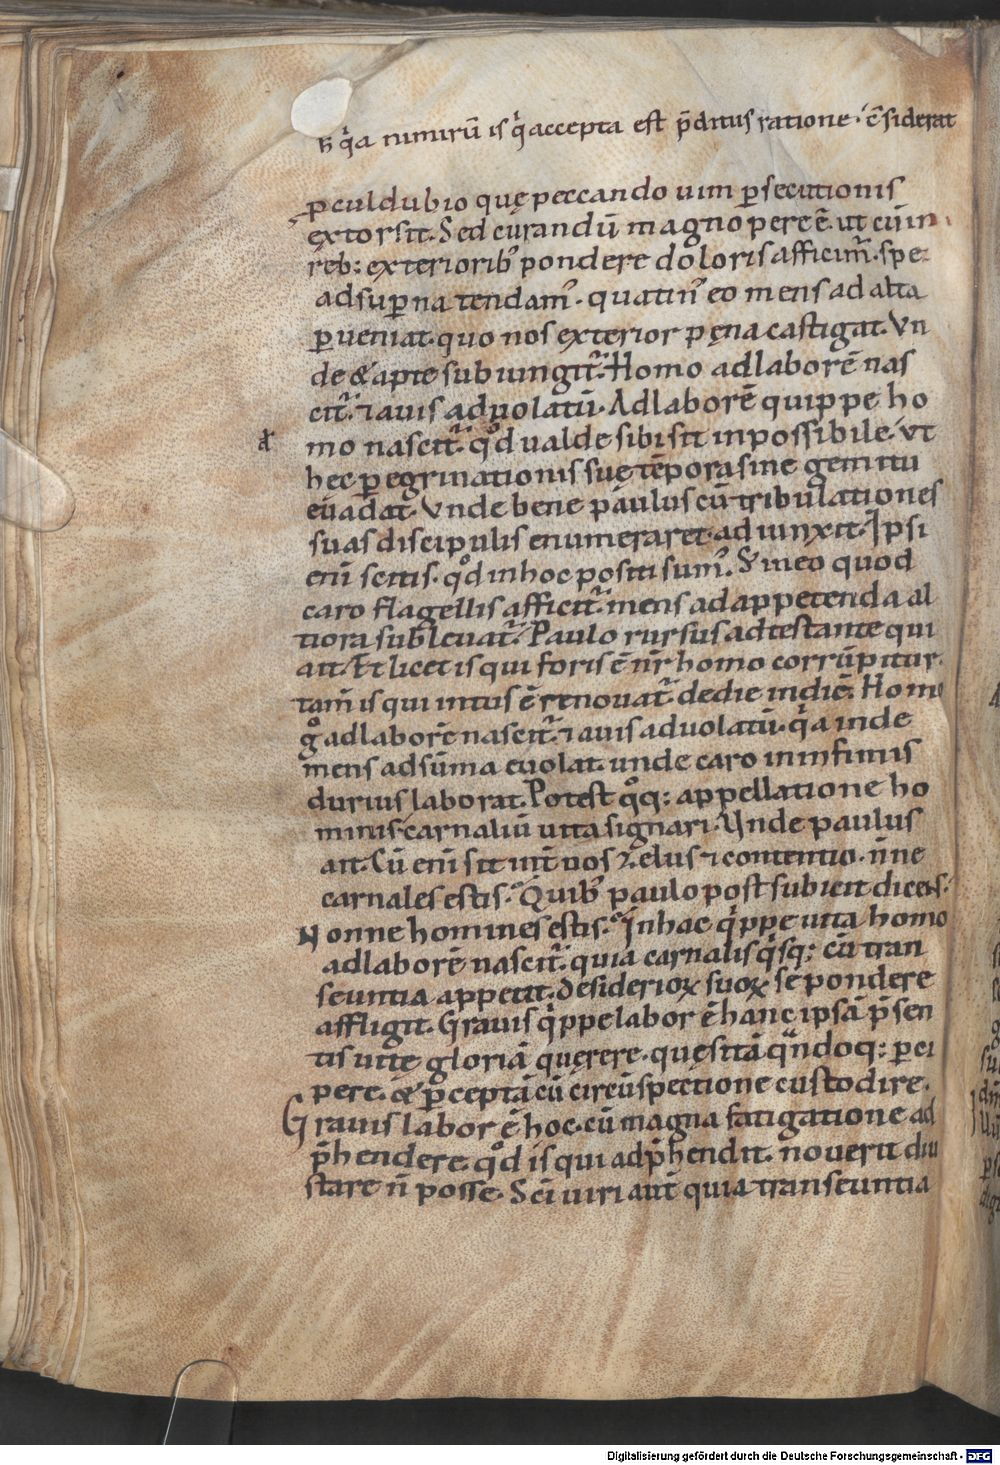 h̄ q̇a nimirū is q̇ accepta est p̄ditus ratione · c̄siderat
ꝑculdubio quę peccando uim ꝑsecutionis
extorsit. Sed curandū magnopere ē. ut cū in
reb; exteriorib᷒ pondere doloris afficim᷒. spe
ad suꝑna tendam᷒. quatin᷒ eo mens ad alta
ꝑueniat. quo nos exterior pęna castigat. Vn
de & apte subiungit᷑. Homo ad laborē nas
cit᷑. ⁊ auis ad uolatū. Ad laborē quippe ho
mo nascit᷑. qd̊ ualde sibi sit inpossibile. ut
hec ꝑegrinationis suę tēpora sine gemitu
euadat. Vnde bene paulus cū tribulationes
suas discipulis enumeraret. adiunxit. Ipsi
enī scitis. qd̊ in hoc positi sum᷒. S; in eo quod
caro flagellis afficit᷑. mens ad appetenda al
tiora subleuat᷑. Paulo rursus adtestante qui
ait. Et licet is qui foris ē nr̄ homo corrūpitur.
tam̄ is qui intus ē renouat᷑ de die in diē. Homo
g̊ ad laborē nascit᷑. ⁊ auis ad uolatū. q̇a inde
mens ad sūma euolat. unde caro in infimis
durius laborat. Potest q̊q; appellatione ho
minis carnaliū uita signari. Vnde paulus
ait. Cū enī sit int̄ uos zelus ⁊ contentio. n̄ne
carnales estis. Quib᷒ paulo post subicit dicens.
Nonne homines estis. In hac q̇ppe uita homo
ad laborē nascit᷑. quia carnalis q̇sq; cū tran
seuntia appetit. desiderioꝝ suoꝝ se pondere
affligit. Grauis q̇ppe labor ē hanc ipsā p̄sen
tis uitę gloriā quęrere. quęsitā qn̄doq; ꝑci
pere. & ꝑceptā cū circūspectione custodire.
Grauis labor ē hoc. cū magna fatigatione ad
p̄hendere. qd̊ is qui adp̄hendit. nouerit diu
stare n̄ posse. Sc̄i uiri aut̄ quia transeuntia
Digitalisierung gefördert durch die Deutsche Forschungsgemeinschaft - DFG